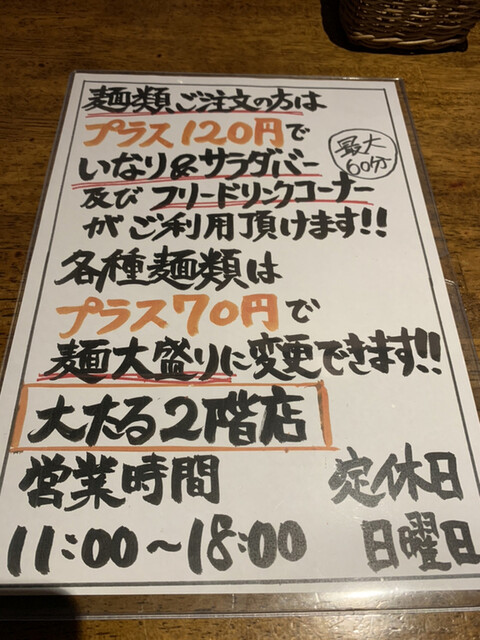 麺類ご注文の方は
プラス120円で
いなり&サラダバー
最大
60分
及びフリードリンクコーナー
がご利用頂けます!!
各種麺類は
プラス70円で
麺大盛りに変更できます!!
大たる2階店
営業時間 定休日
11:00~18:00 日曜日